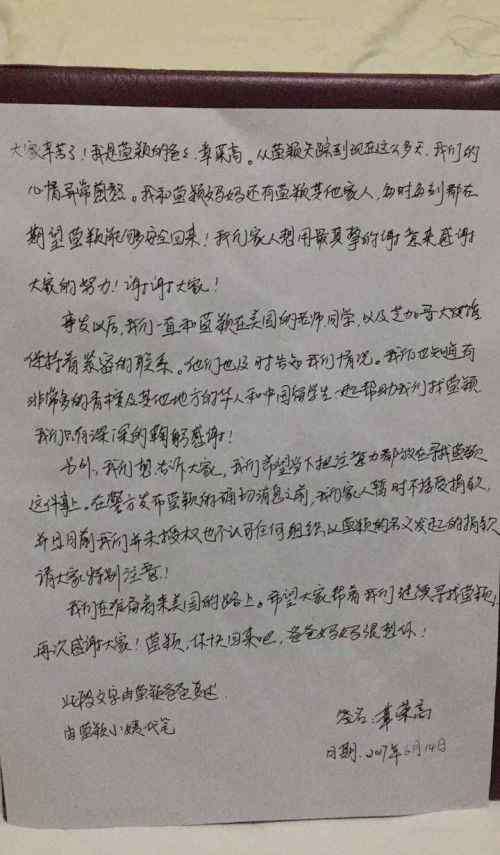 大家辛苦了！我是莹颖的爸爸，章荣高。从莹颖失踪到现在这么多天，我们的
心情异常煎熬。我和莹颖妈妈还有莹颖其他家人，每时每刻都在
期望莹颖能够安全回来！我们家人想用最真挚的谢意来感谢
大家的努力！谢谢大家！
事发以后，我们一直和莹颖在美国的老师同学，以及芝加哥大使馆
保持着紧密的联系。他们也及时告知我们情况。我们也知道有
非常多的香槟及其他地方的华人和中国留学生一起帮助我们找莹颖
我们只有深深的鞠躬感谢！
另外，我们想告诉大家，我们希望当下把注意力都放在寻找莹颖
这件事上。在警方发布莹颖的确切消息之前，我们家人暂时不接受捐款，
并且目前我们并未授权也不认可任何组织以莹颖的名义发起的捐款
请大家特别注意！
我们在准备着来美国的路上。希望大家帮着我们继续寻找莹颖，
再次感谢大家！莹颖，你快回来吧，爸爸妈妈很想你！
此段文字由莹颖爸爸口述
由莹颖小姨代笔
签名：章荣高
日期：2017年6月14日